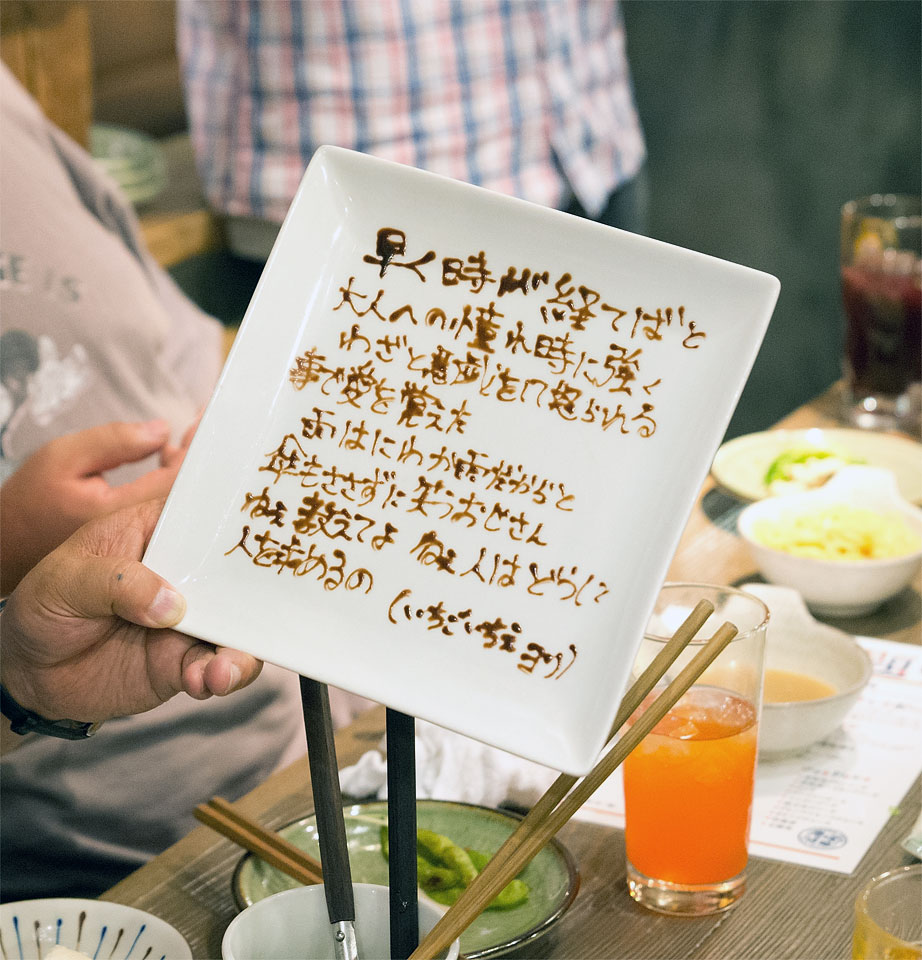 早く時が経てばと
大人への憧れ時に強く
わざと悪戯をして怒られる
事で愛を覚えた
雨はにわか雨だからと
傘もささずに笑うおじさん
ねぇ教えてよ ねぇ人はどうして
人を求めるの
(いちごいちえより)